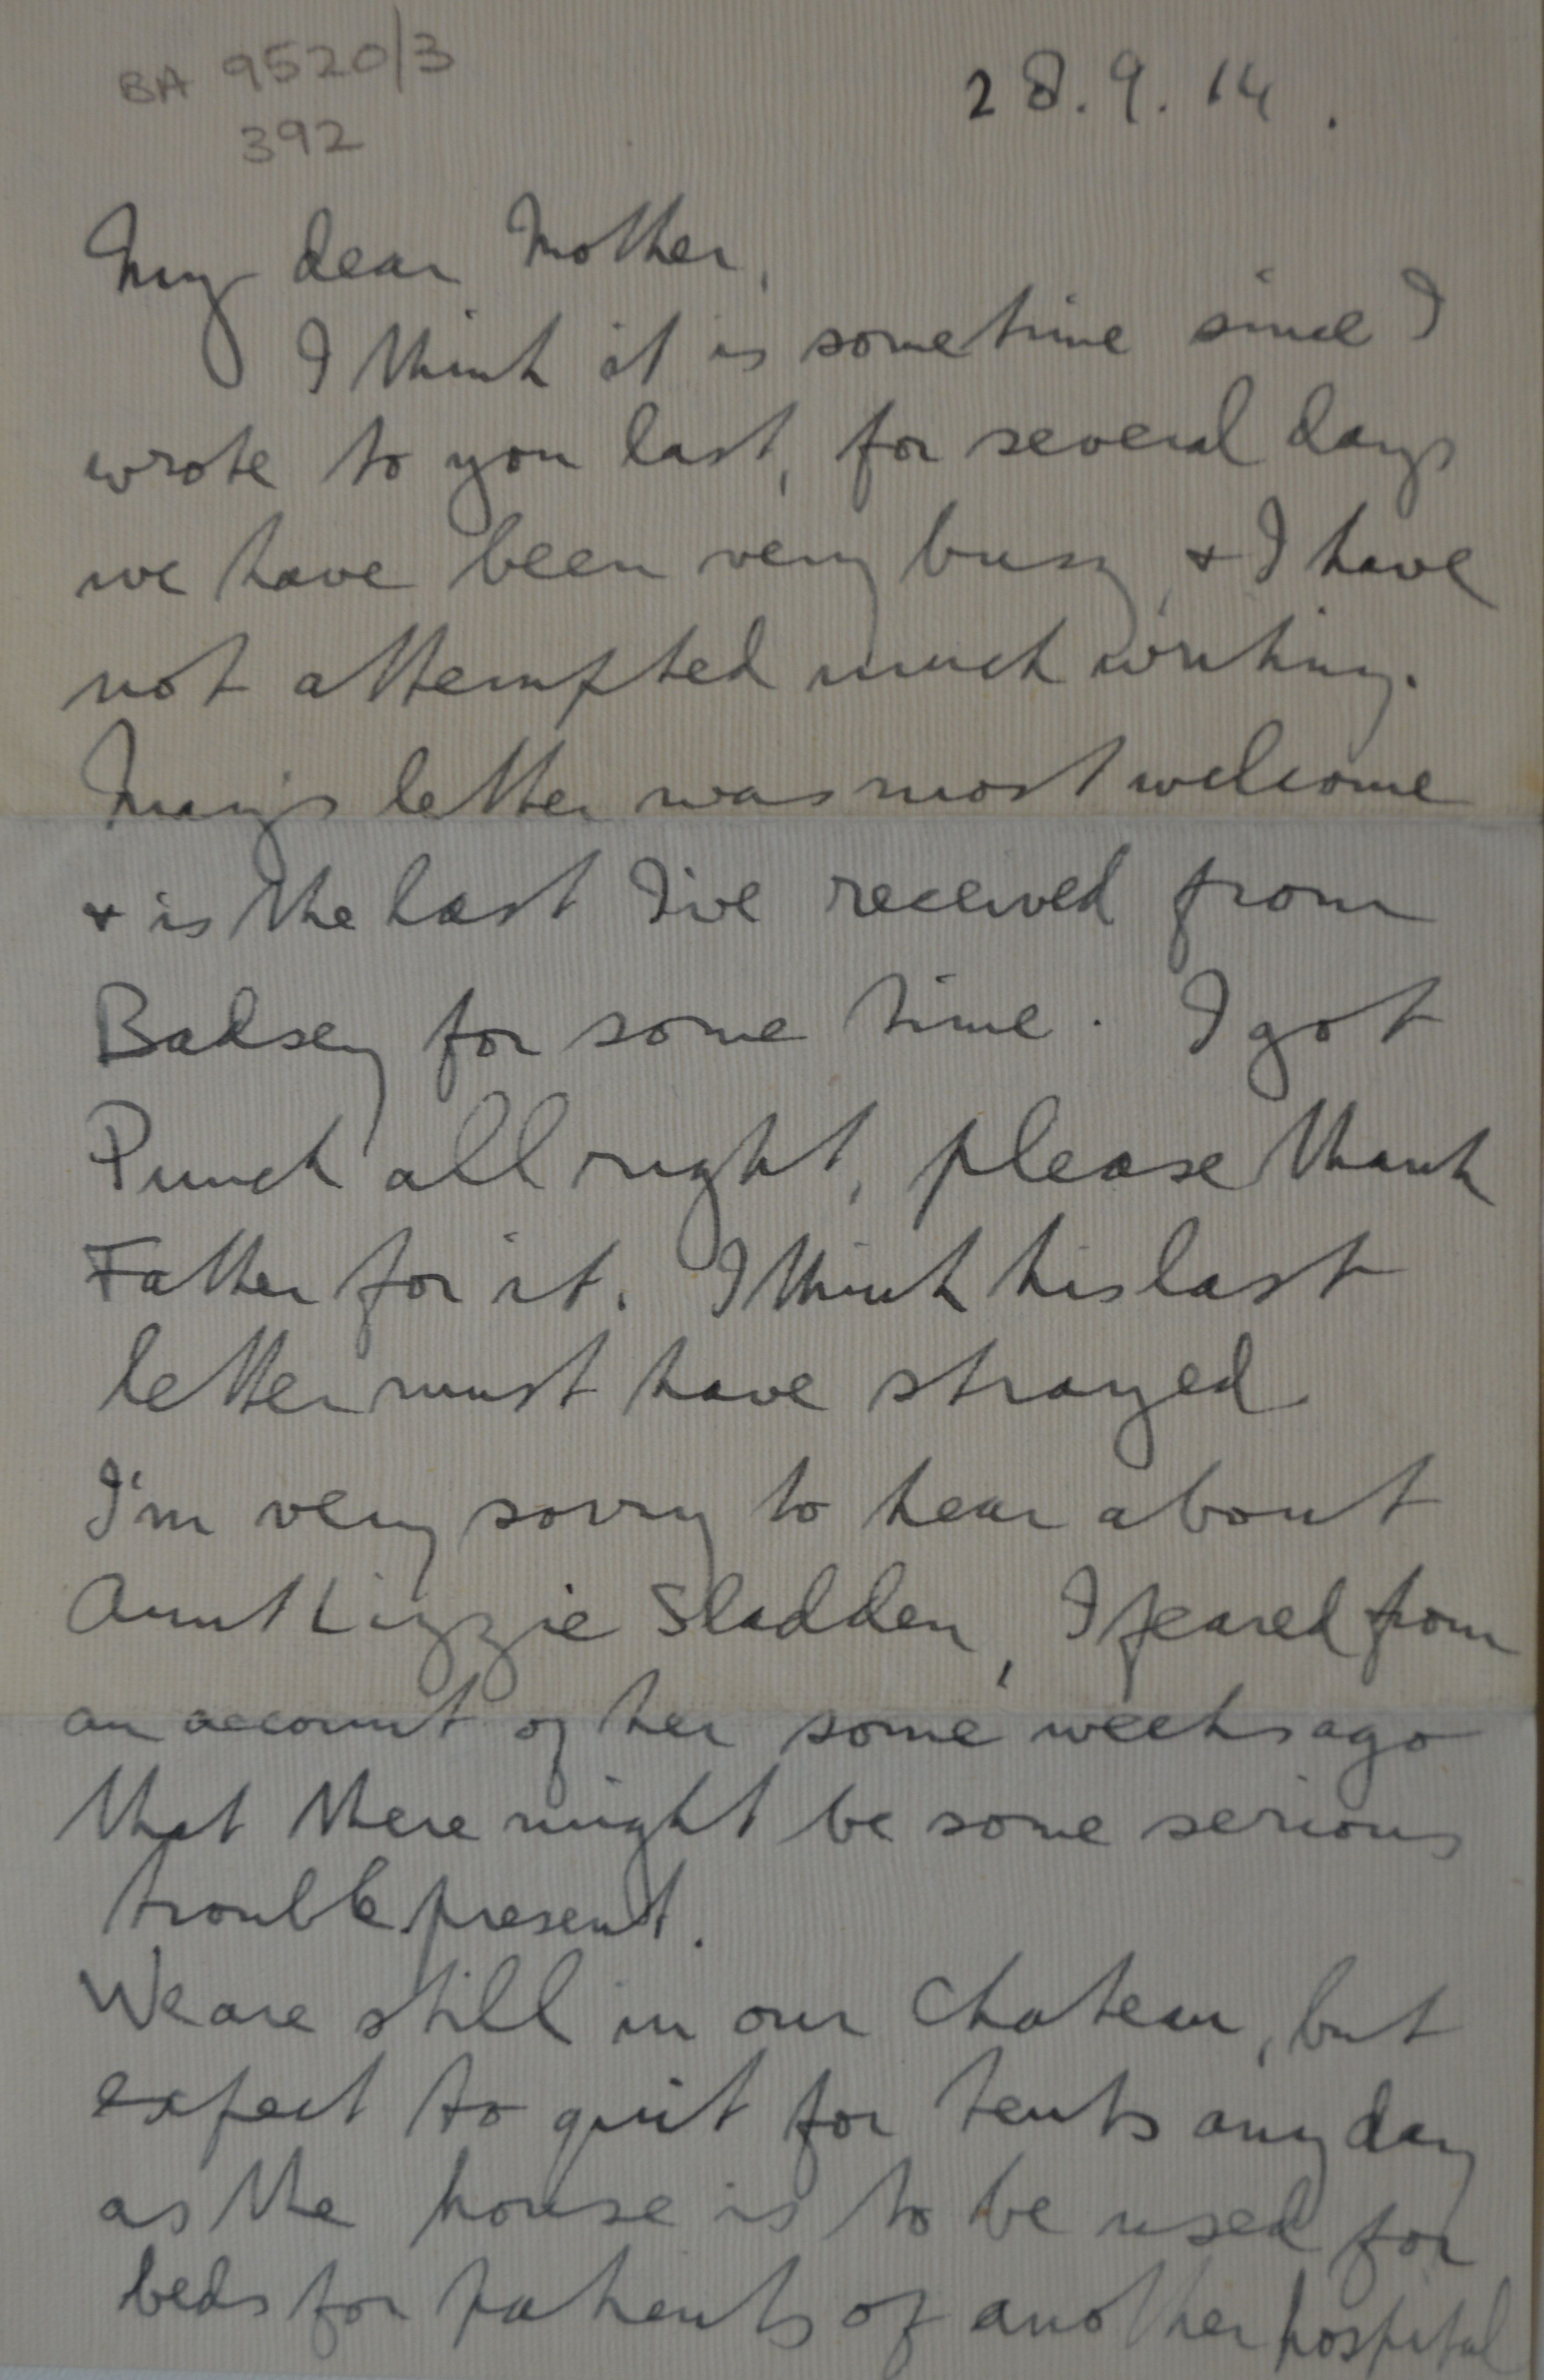 BA 9520/3
392
28.9.14.
My dear Mother,
I think it is sometime since I
wrote to you last, for several days
we have been very busy, + I have
not attempted much writing.
May's letter was most welcome
+ is the last I've received from
Badsey for some time. I got
Punch all right, please thank
Father for it. I think his last
letter must have strayed
I'm very sorry to hear about
Aunt Lizzie Sladden, I feared from
an account of her some weeks ago
that there might be some serious
trouble present.
We are still in our Chateau, but
expect to quit for tents any day
as the house is to be used for
beds for patients of another hospital